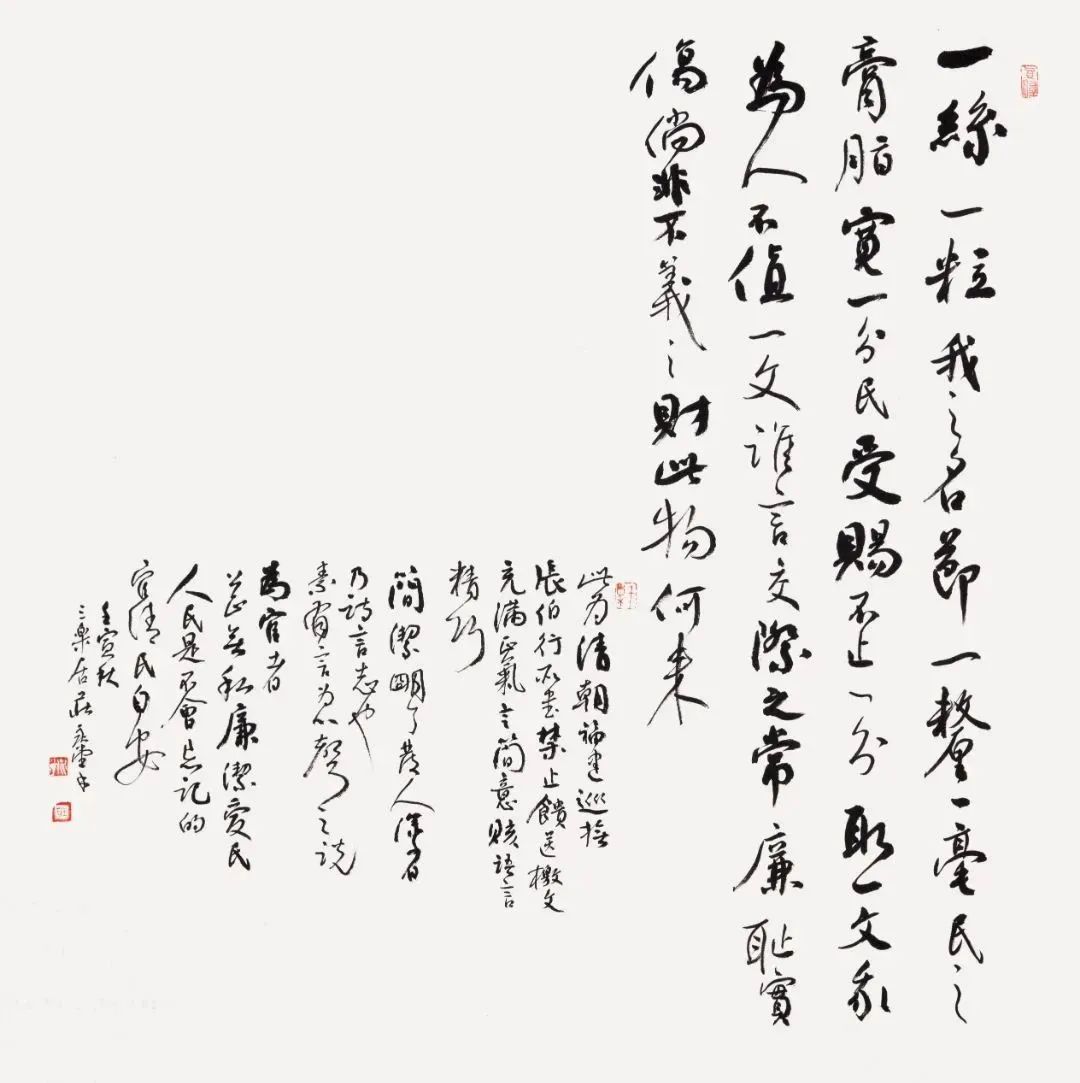 一絲一粒我之名節一整一毫民之
膏脂寬一分民受賜不止一分取一文我
為人不值一文誰言交際之常廉恥實
傷倘非不義之財此物何来
此为清朝福建巡撫
張伯行所书禁止饋送檄文
充满正氣言简意赅語言
精巧
簡潔明了发人深省
乃詩言志也
素有言为心聲之说
為官者
若無私廉潔爱民
人民是不會忘記的
官清民自安
壬寅秋
三樂居莊